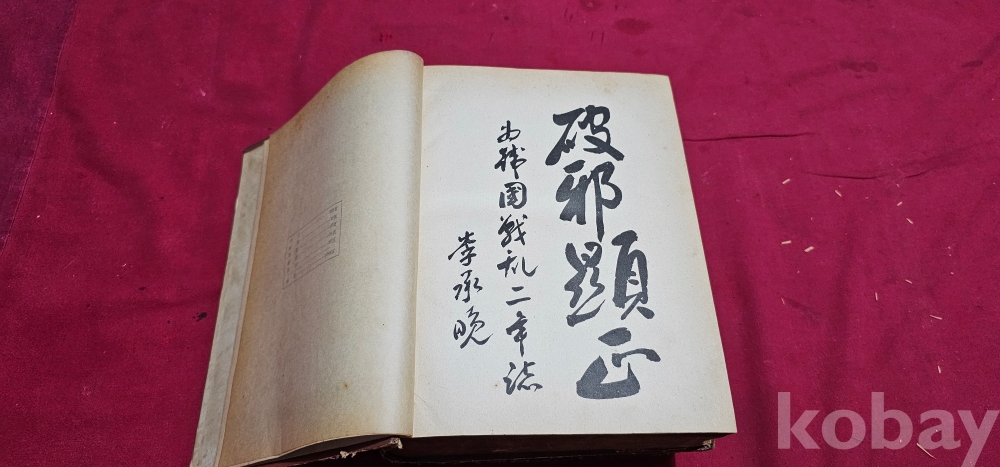 破邪顕正
為韓國戰乱二年誌
李承晚
kobay